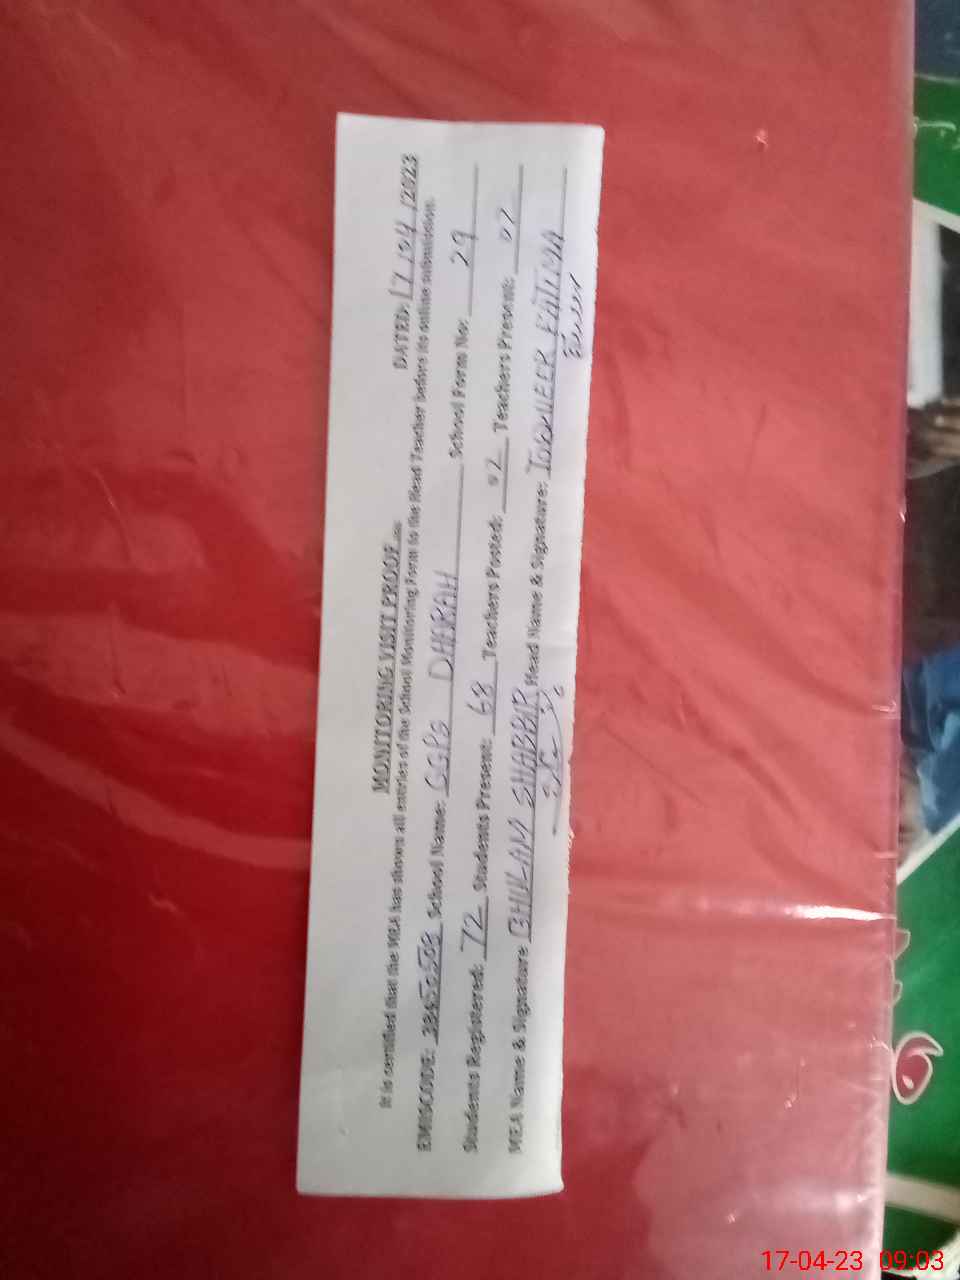 MONITORING VISIT PROOF
DATED: 17/04/2023
It is certified that the MEA has shown all entries of the School Monitoring Form to the Head Teacher before its online submission.
EMISCODE: School Name: GGPS DHARAH School Form No: 29
Students Registered: 72 Students Present: 68 Teachers Posted: 02 Teachers Present: 02
MEA Name & Signature GHULAM SHABBIR Head Name & Signature: FATIMA
17-04-23 09:03